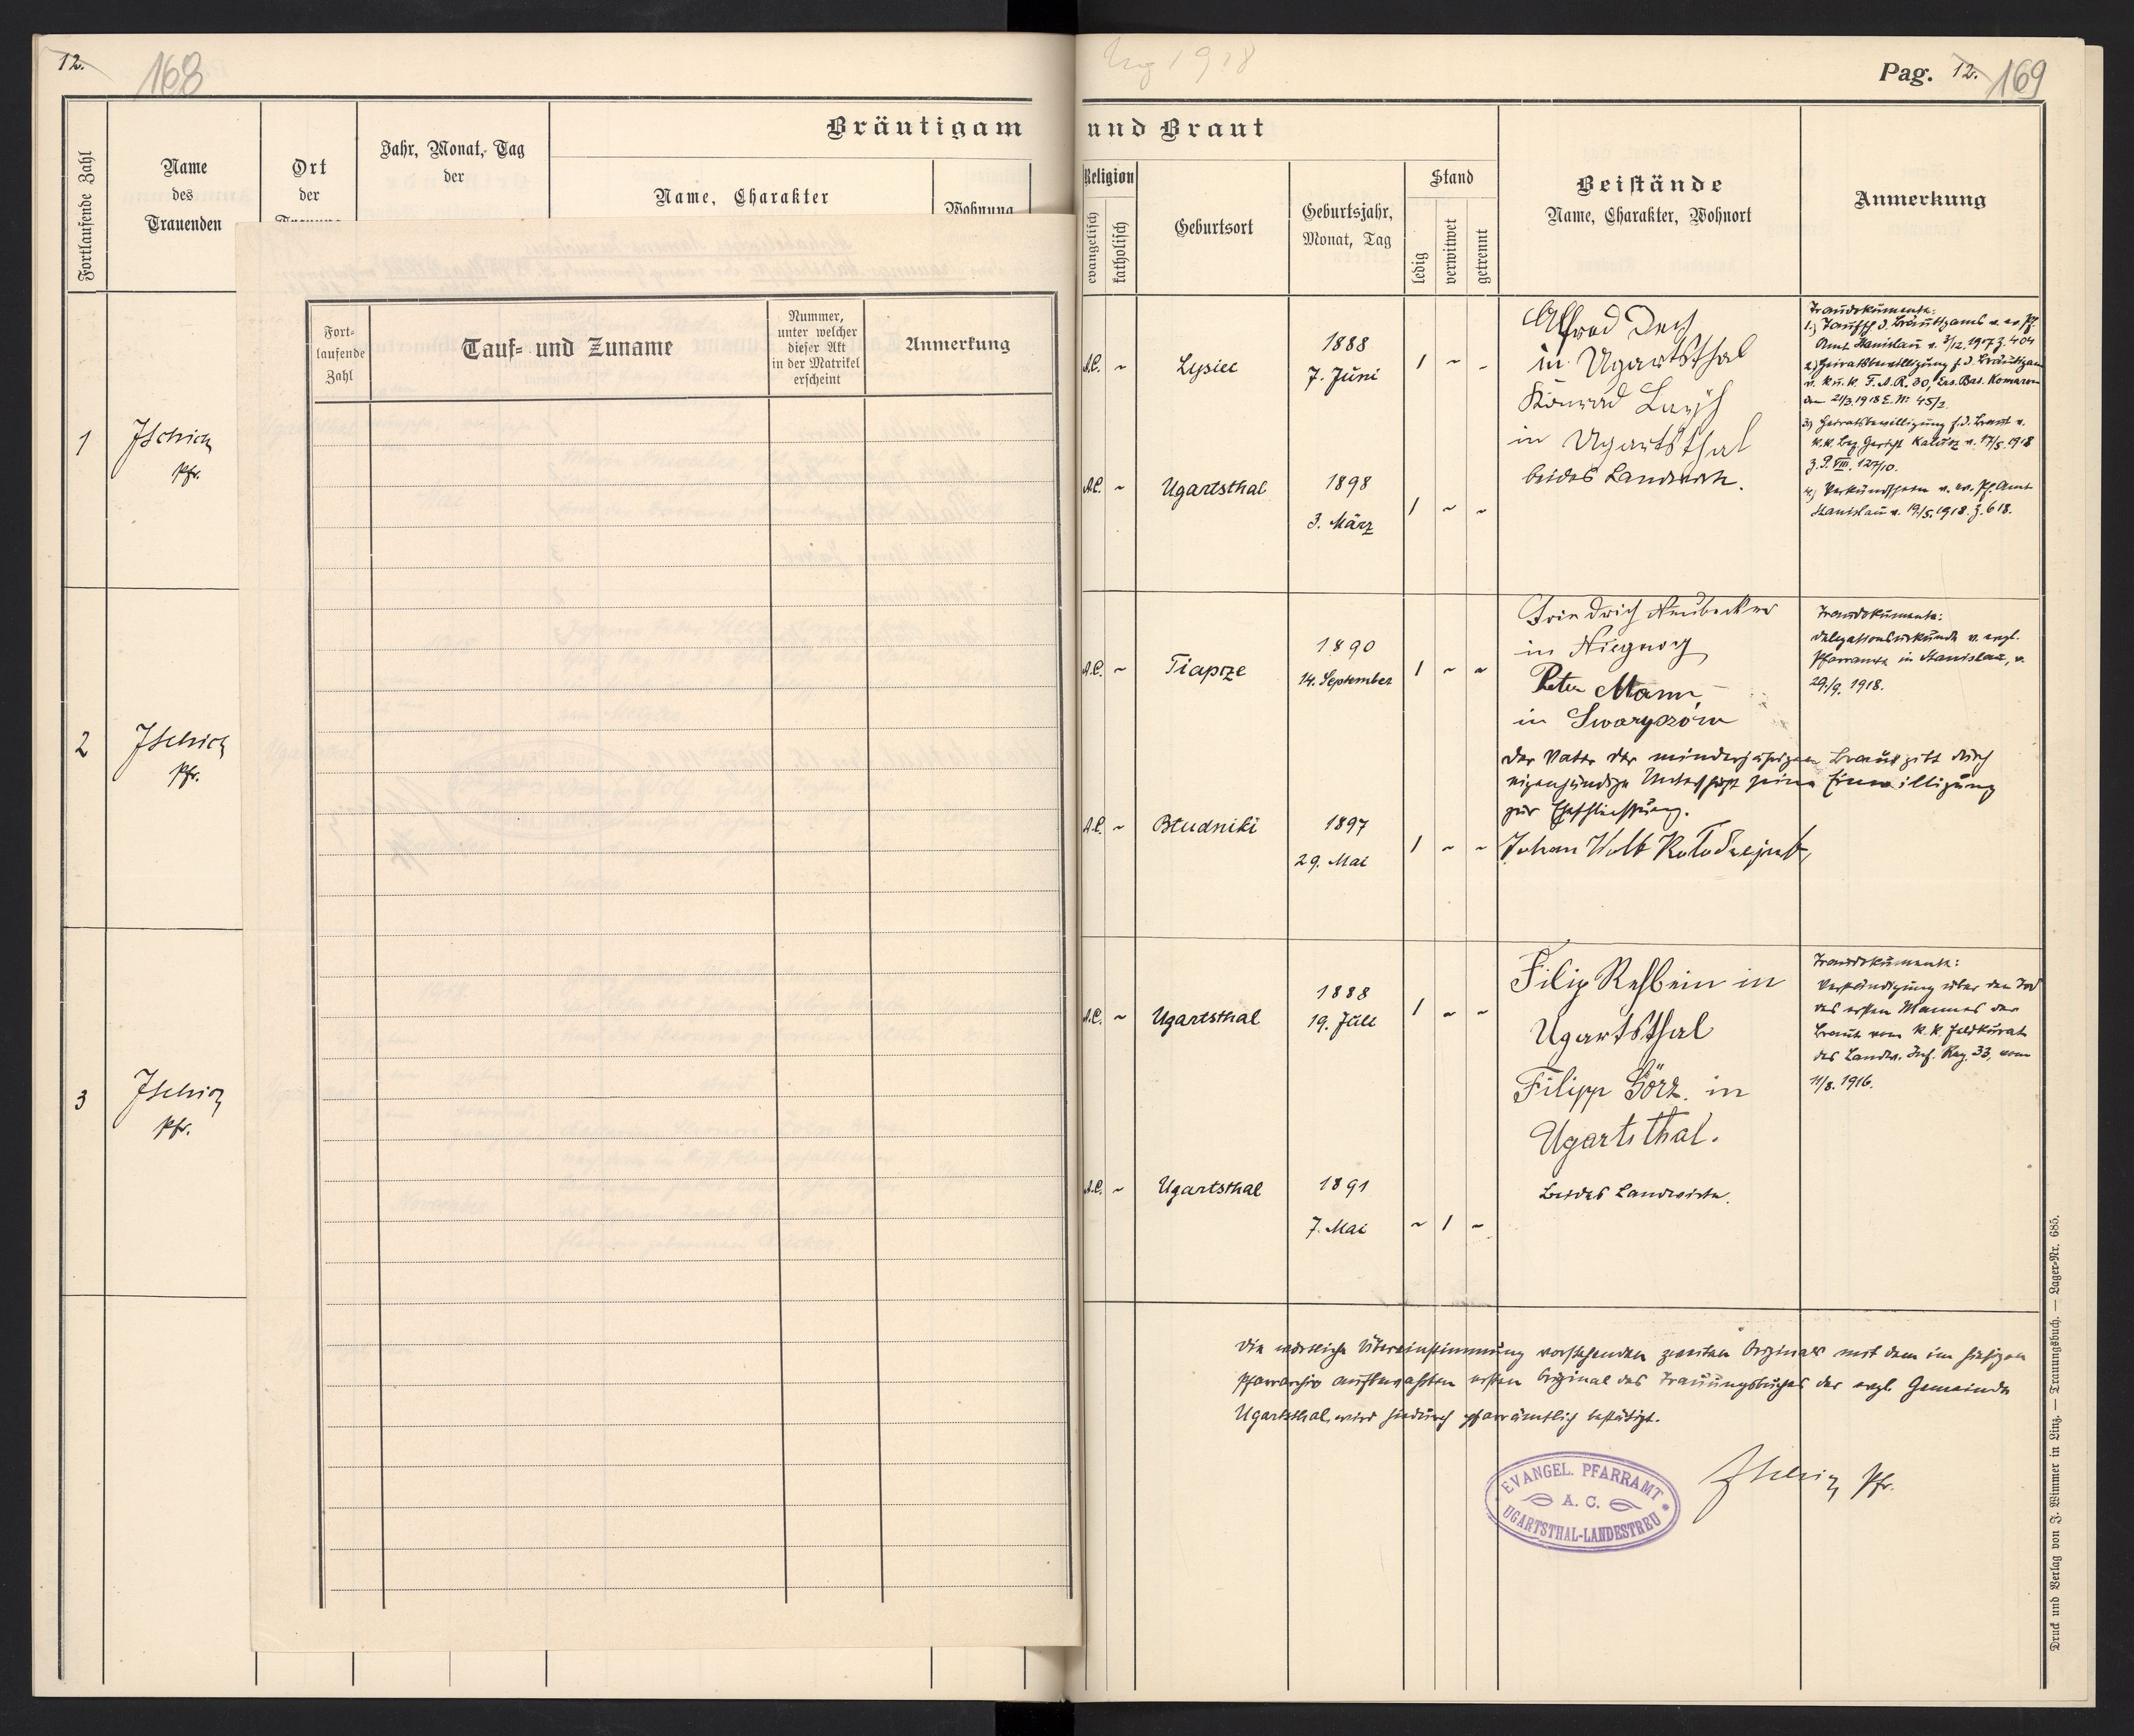 12.
168
Fortlaufende Zahl
Name
des
Trauenden
Ort
der
Jahr, Monat, Tag
der
Bräutigam
Name, Charakter
Wohnung
1
Pfr.
2
Pfr.
3
Pfr.
Fort-
laufende
Zahl
Tauf- und Zuname
Nummer,
unter welcher
dieser Akt
in der Matrikel
erscheint
Anmerkung
Ug 1918
Pag. 12. 169
und Braut
Religion
evangelisch
katholisch
Geburtsort
Geburtsjahr,
Monat, Tag
Stand
ledig
verwitwet
getrennt
Beistände
Name, Charakter, Wohnort
Anmerkung
A.C. ~ Lysiec 1888
7. Juni
1 ~ ~
Alfred
in Ugartsthal
Konrad
in Ugartsthal
beides Landwirte.
Traudokumente:
1.) Taufsch. d. Bräutigams v. ev. Pf.
Amt Stanislau v. 3/12. 1917 Z. 404
2.) Heiratsbewilligung f. d. Bräutigam
v. k.u.k. F.A.R. 30, Ers. Bat. Komarom
am 21/3. 1918 E. Nr 45/2.
3) Heiratsbewilligung f. d. Braut v.
k.k. Bez. Gericht Kalusz v. 17/5. 1918
Z. P. VIII. 127/10.
4.) Verkündschein v. ev. Pf. Amt
Stanislau v. 19/5. 1918. Z. 618.
A.C. ~ Ugartsthal 1898
3. März
1 ~ ~
A.C. ~ Tiapcze 1890
14. September
1 ~ ~
Friedrich Neubecker
in
Peter Mann,
in Swaryczów
Traudokumente:
Delegationsurkunde v. evgl.
Pfarramte in Stanislau, v.
29./9. 1918.
Der Vater der minderjährigen Braut gibt durch
eigenhändige Unterschrift seine Einwilligung
zur Eheschliessung.
Johan Wolf
A.C. ~ Bludniki 1897
29. Mai
1 ~ ~
A.C. ~ Ugartsthal 1888
19. Juli
1 ~ ~
Filip Rehbein in
Ugartsthal
Filipp Görz. in
Ugartsthal.
beides Landwirte.
Traudokumente:
Verständigung über den Tod
des ersten Mannes der
Braut vom k.k. Feldkurat
des Landw. Inf. Reg. 33, vom
11/8. 1916.
A.C. ~ Ugartsthal 1891
7. Mai
~ 1 ~
Die wörtliche Übereinstimmung vorstehenden zweiten Originals mit dem im hiesigen
Pfarrarchiv aufbewahrten ersten Original des Trauungsbuches der evgl. Gemeinde
Ugartsthal, wird hiedurch pfarrämtlich bestätigt.
EVANGEL. PFARRAMT
A. C.
UGARTSTHAL-LANDESTREU
Pfr.
Druck und Verlag von J. Wimmer in Linz. — Trauungsbuch. — Lager-Nr. 685.